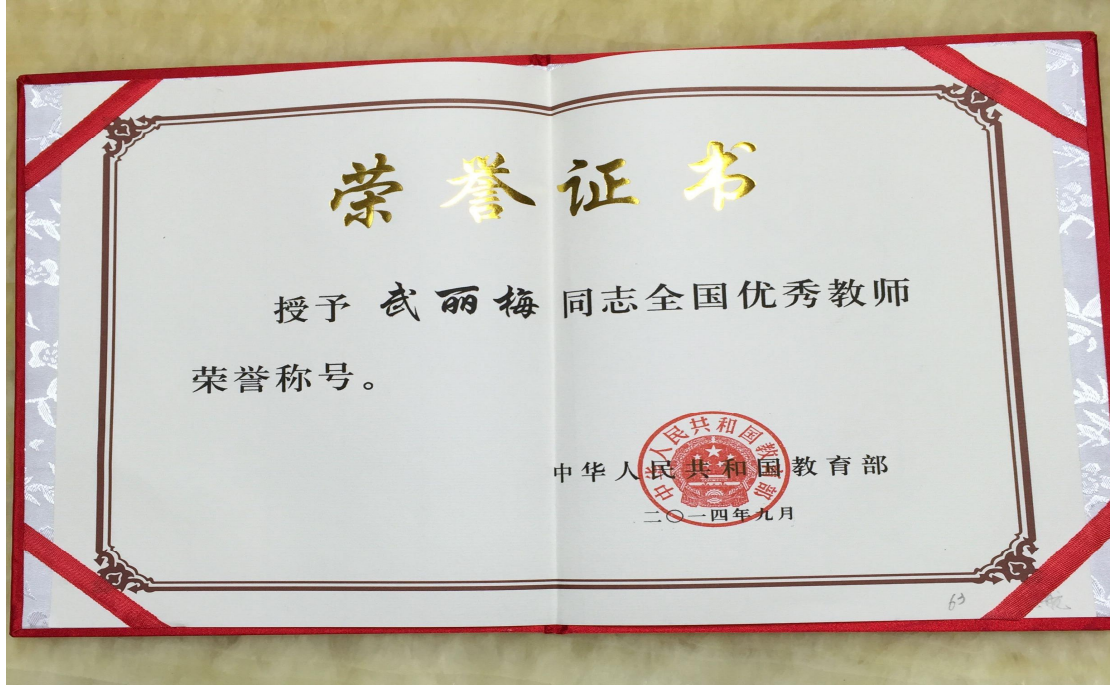 荣誉证书
授予 武丽梅 同志全国优秀教师
荣誉称号。
中华人民共和国教育部
中华人民共和国教育部
二〇一四年九月
63